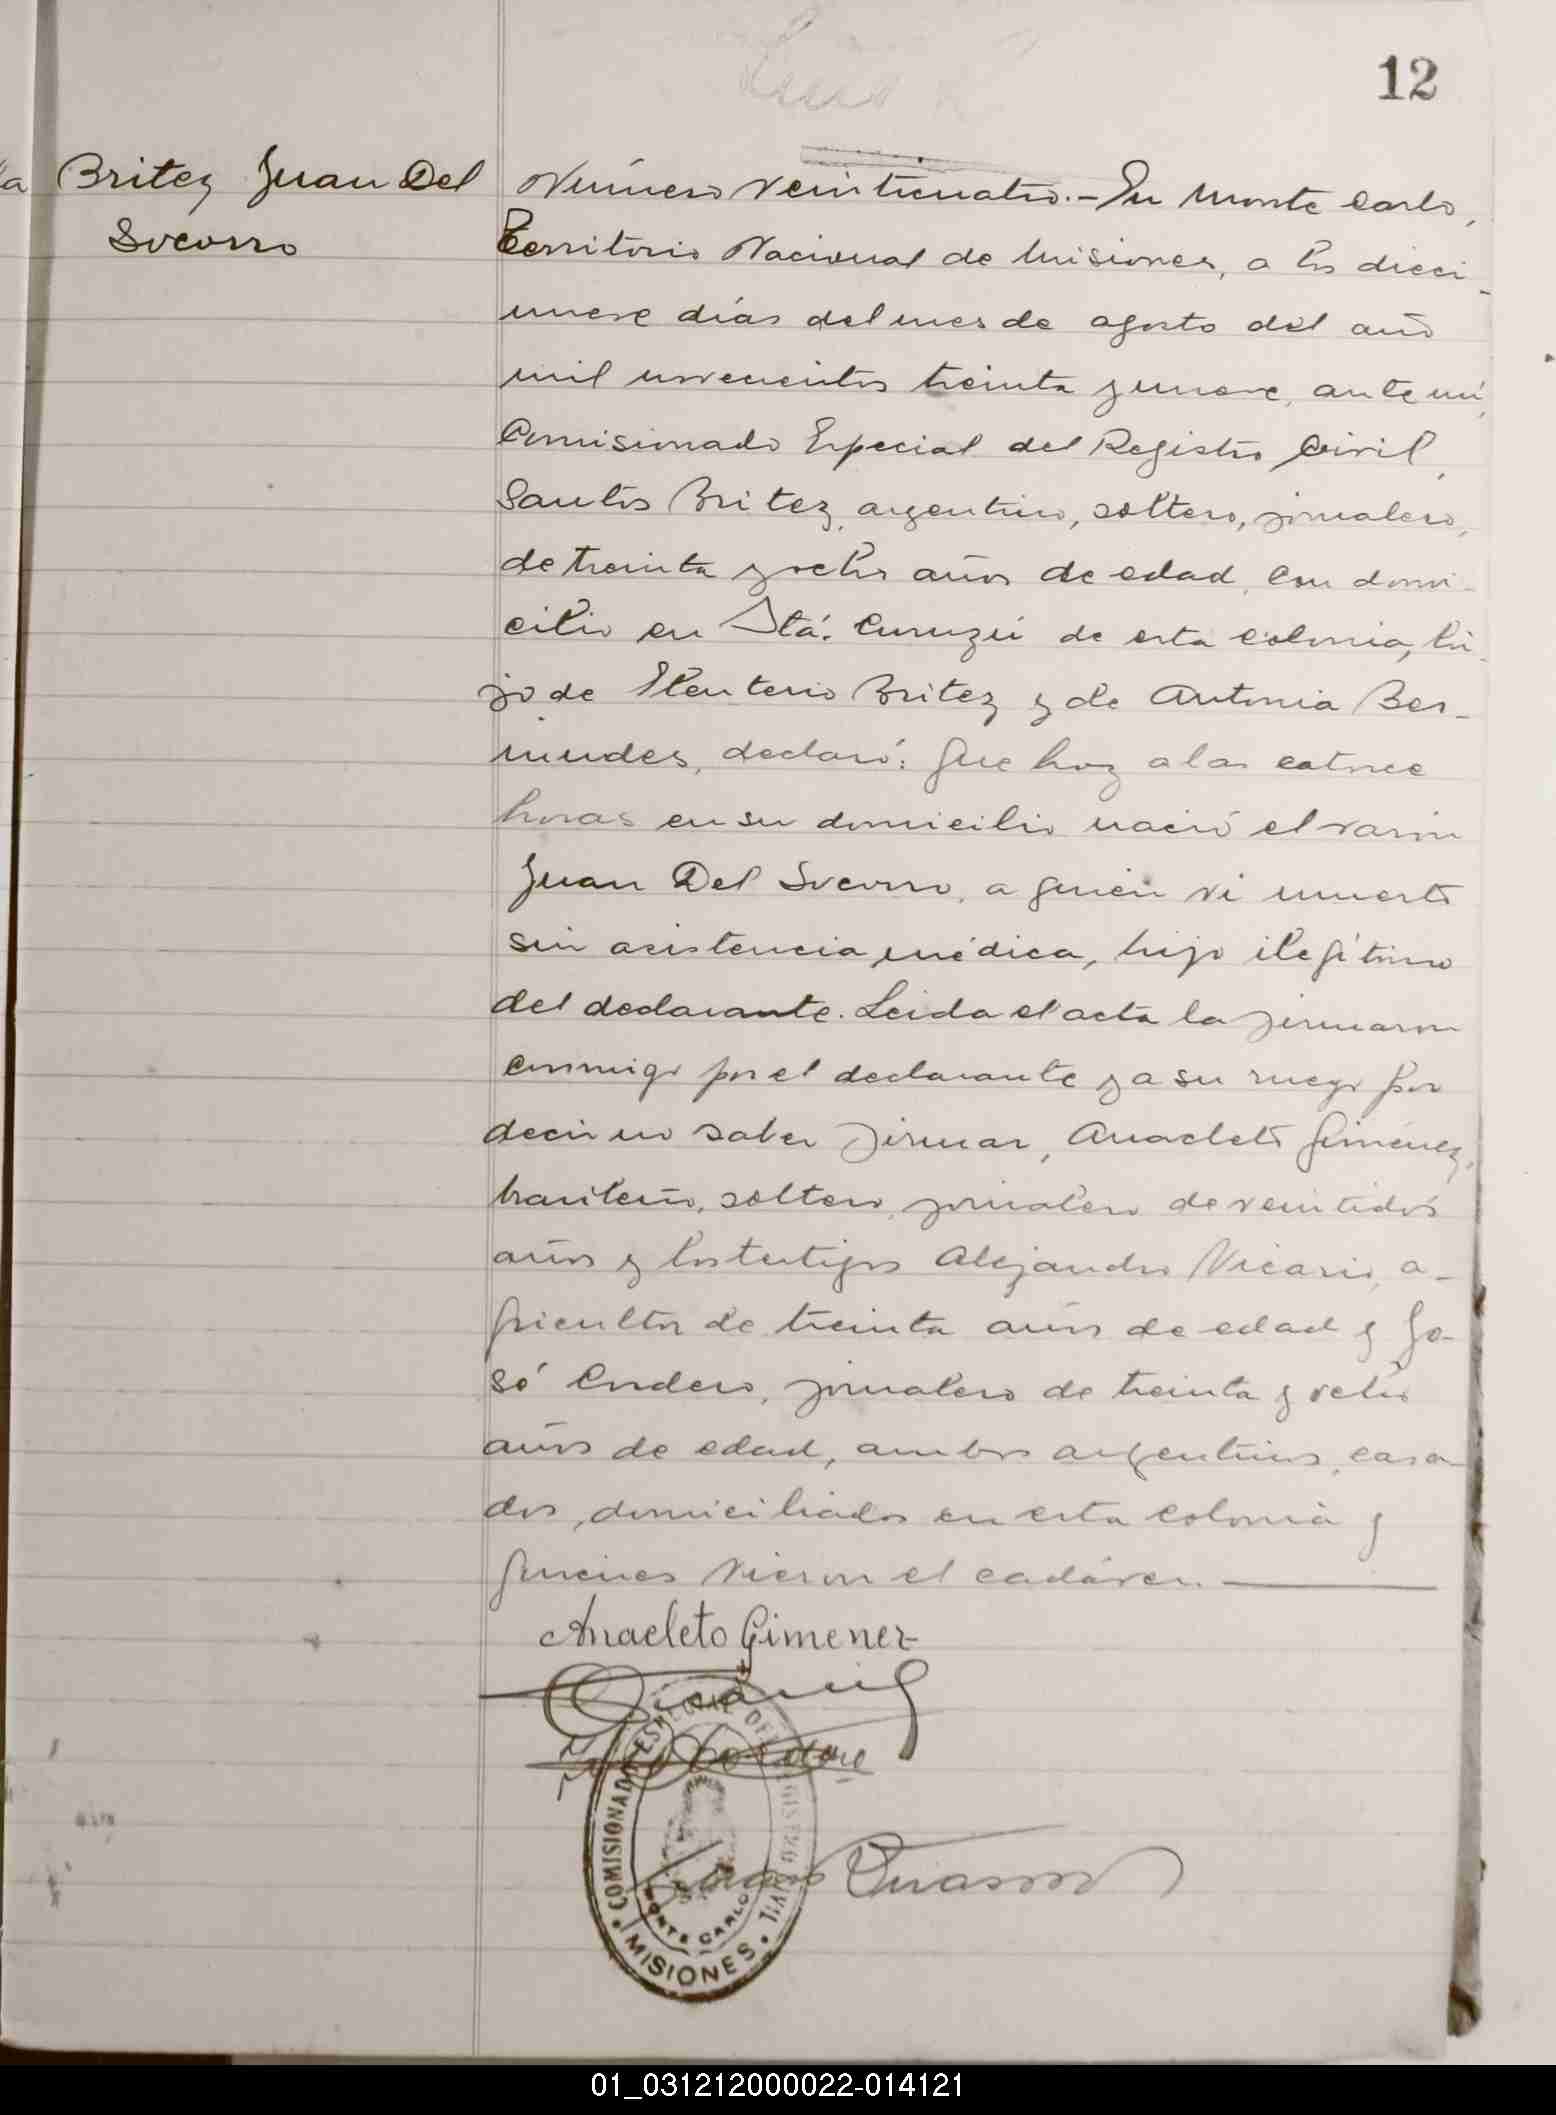 12
Britez Juan Del
Socorro
Número veinticuatro.- En Monte Carlo,
Territorio Nacional de Misiones, a los dieci-
nueve días del mes de agosto del año
mil novecientos treinta y nueve, ante mí,
Comisionado Especial del Registro Civil,
Santos Britez, argentino, soltero, jornalero,
de treinta y ocho años de edad, con domi-
cilio en Stá. Curuzú de esta colonia, hi-
jo de Eleuterio Britez y de Antonia Ber-
mudes, declaró: Que hoy a las catorce
horas en su domicilio nació el varón
Juan Del Socorro, a quien vi muerto
sin asistencia médica, hijo ilegítimo
del declarante. Leida el acta la firmaron
conmigo por el declarante y a su ruego por
decir no saber firmar, Anacleto Giménez,
brasileño, soltero, jornalero de veintidós
años y los testigos Alejandro Vicario, a-
gricultor de treinta años de edad y Jo-
sé Cordero, jornalero de treinta y ocho
años de edad, ambos argentinos, casa-
dos, domiciliados en esta colonia y
quienes vieron el cadáver.
Anacleto Gimenez
COMISIONADO ESPECIAL DEL REGISTRO CIVIL
MONTE CARLO
MISIONES
01_031212000022-014121